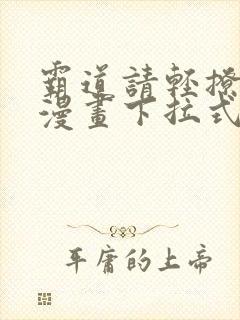 霸道請輕撩
漫畫下拉式
平庸的上帝